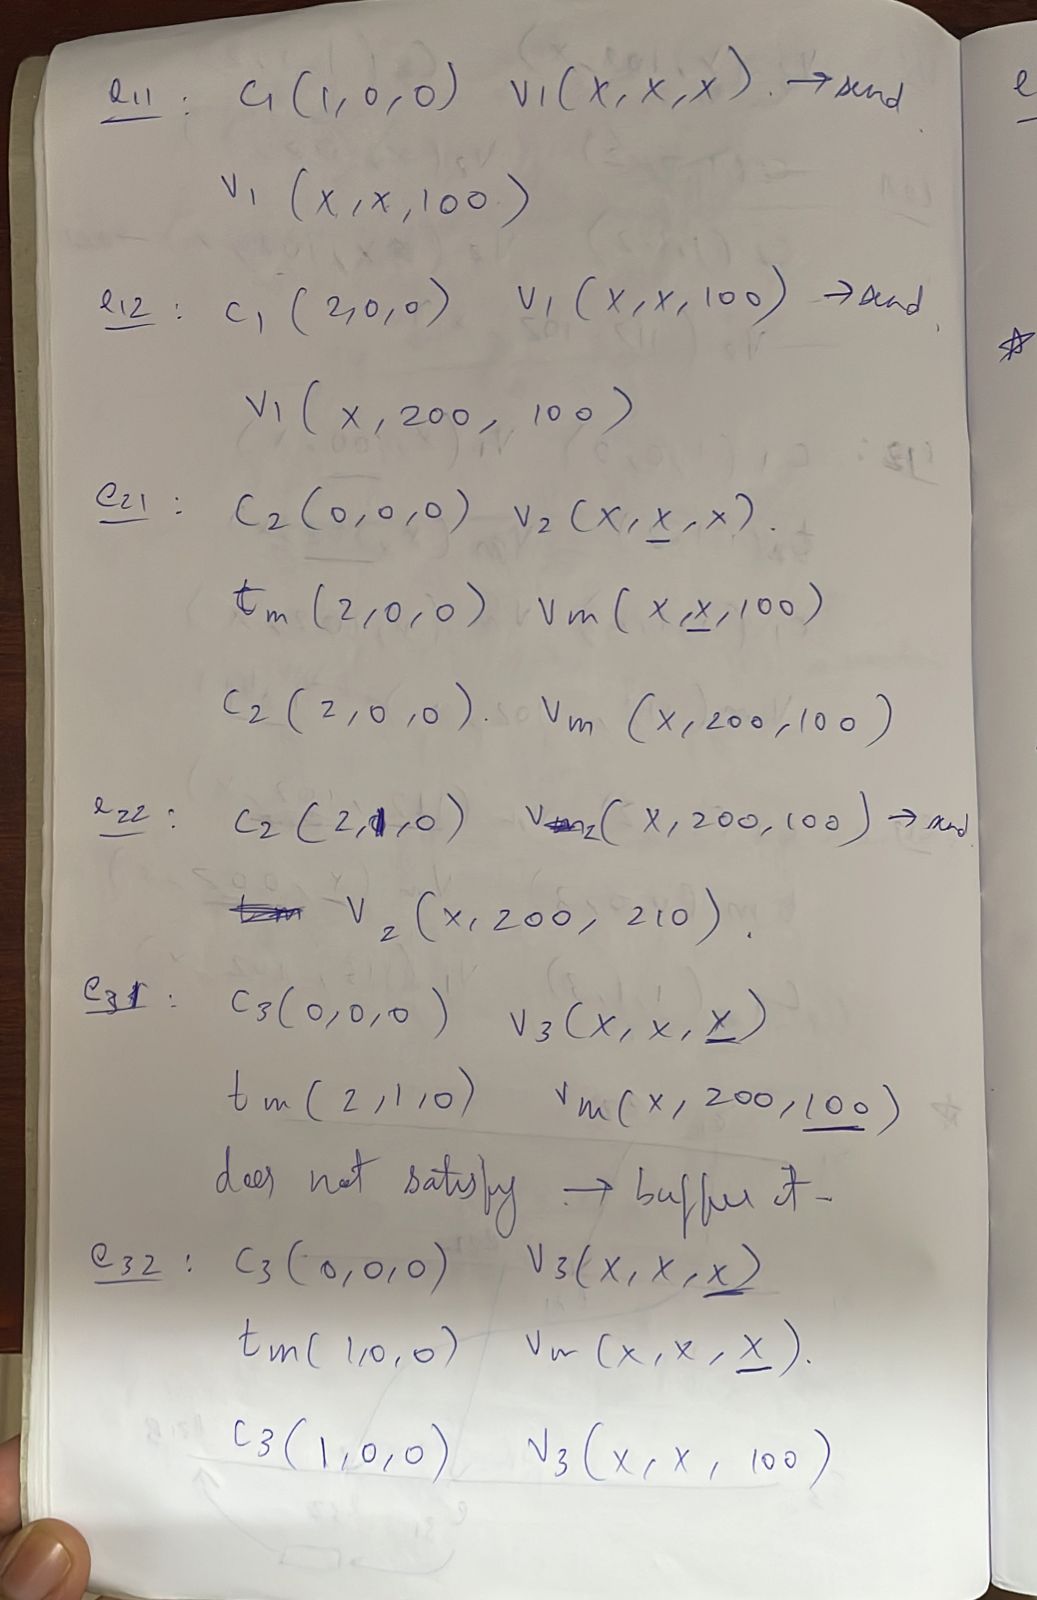 e11 : C1 (1,0,0) V1 (x,x,x). → send
V1 (x,x,100)
e12 : C1 (2,0,0) V1 (x,x,100) → send
V1 (x,200,100)
e21 : C2 (0,0,0) V2 (x,x,x).
tm (2,0,0) Vm (x,x,100)
C2 (2,0,0). Vm (x,200,100)
e22 : C2 (2,1,0) V2 (x,200,100) → send
V2 (x,200,210).
e31 : C3 (0,0,0) V3 (x,x,x)
tm (2,1,0) Vm (x,200,100)
does not satisfy → buffer it -
e32 : C3 (0,0,0) V3 (x,x,x)
tm (1,0,0) Vm (x,x,x).
C3 (1,0,0) V3 (x,x,100)